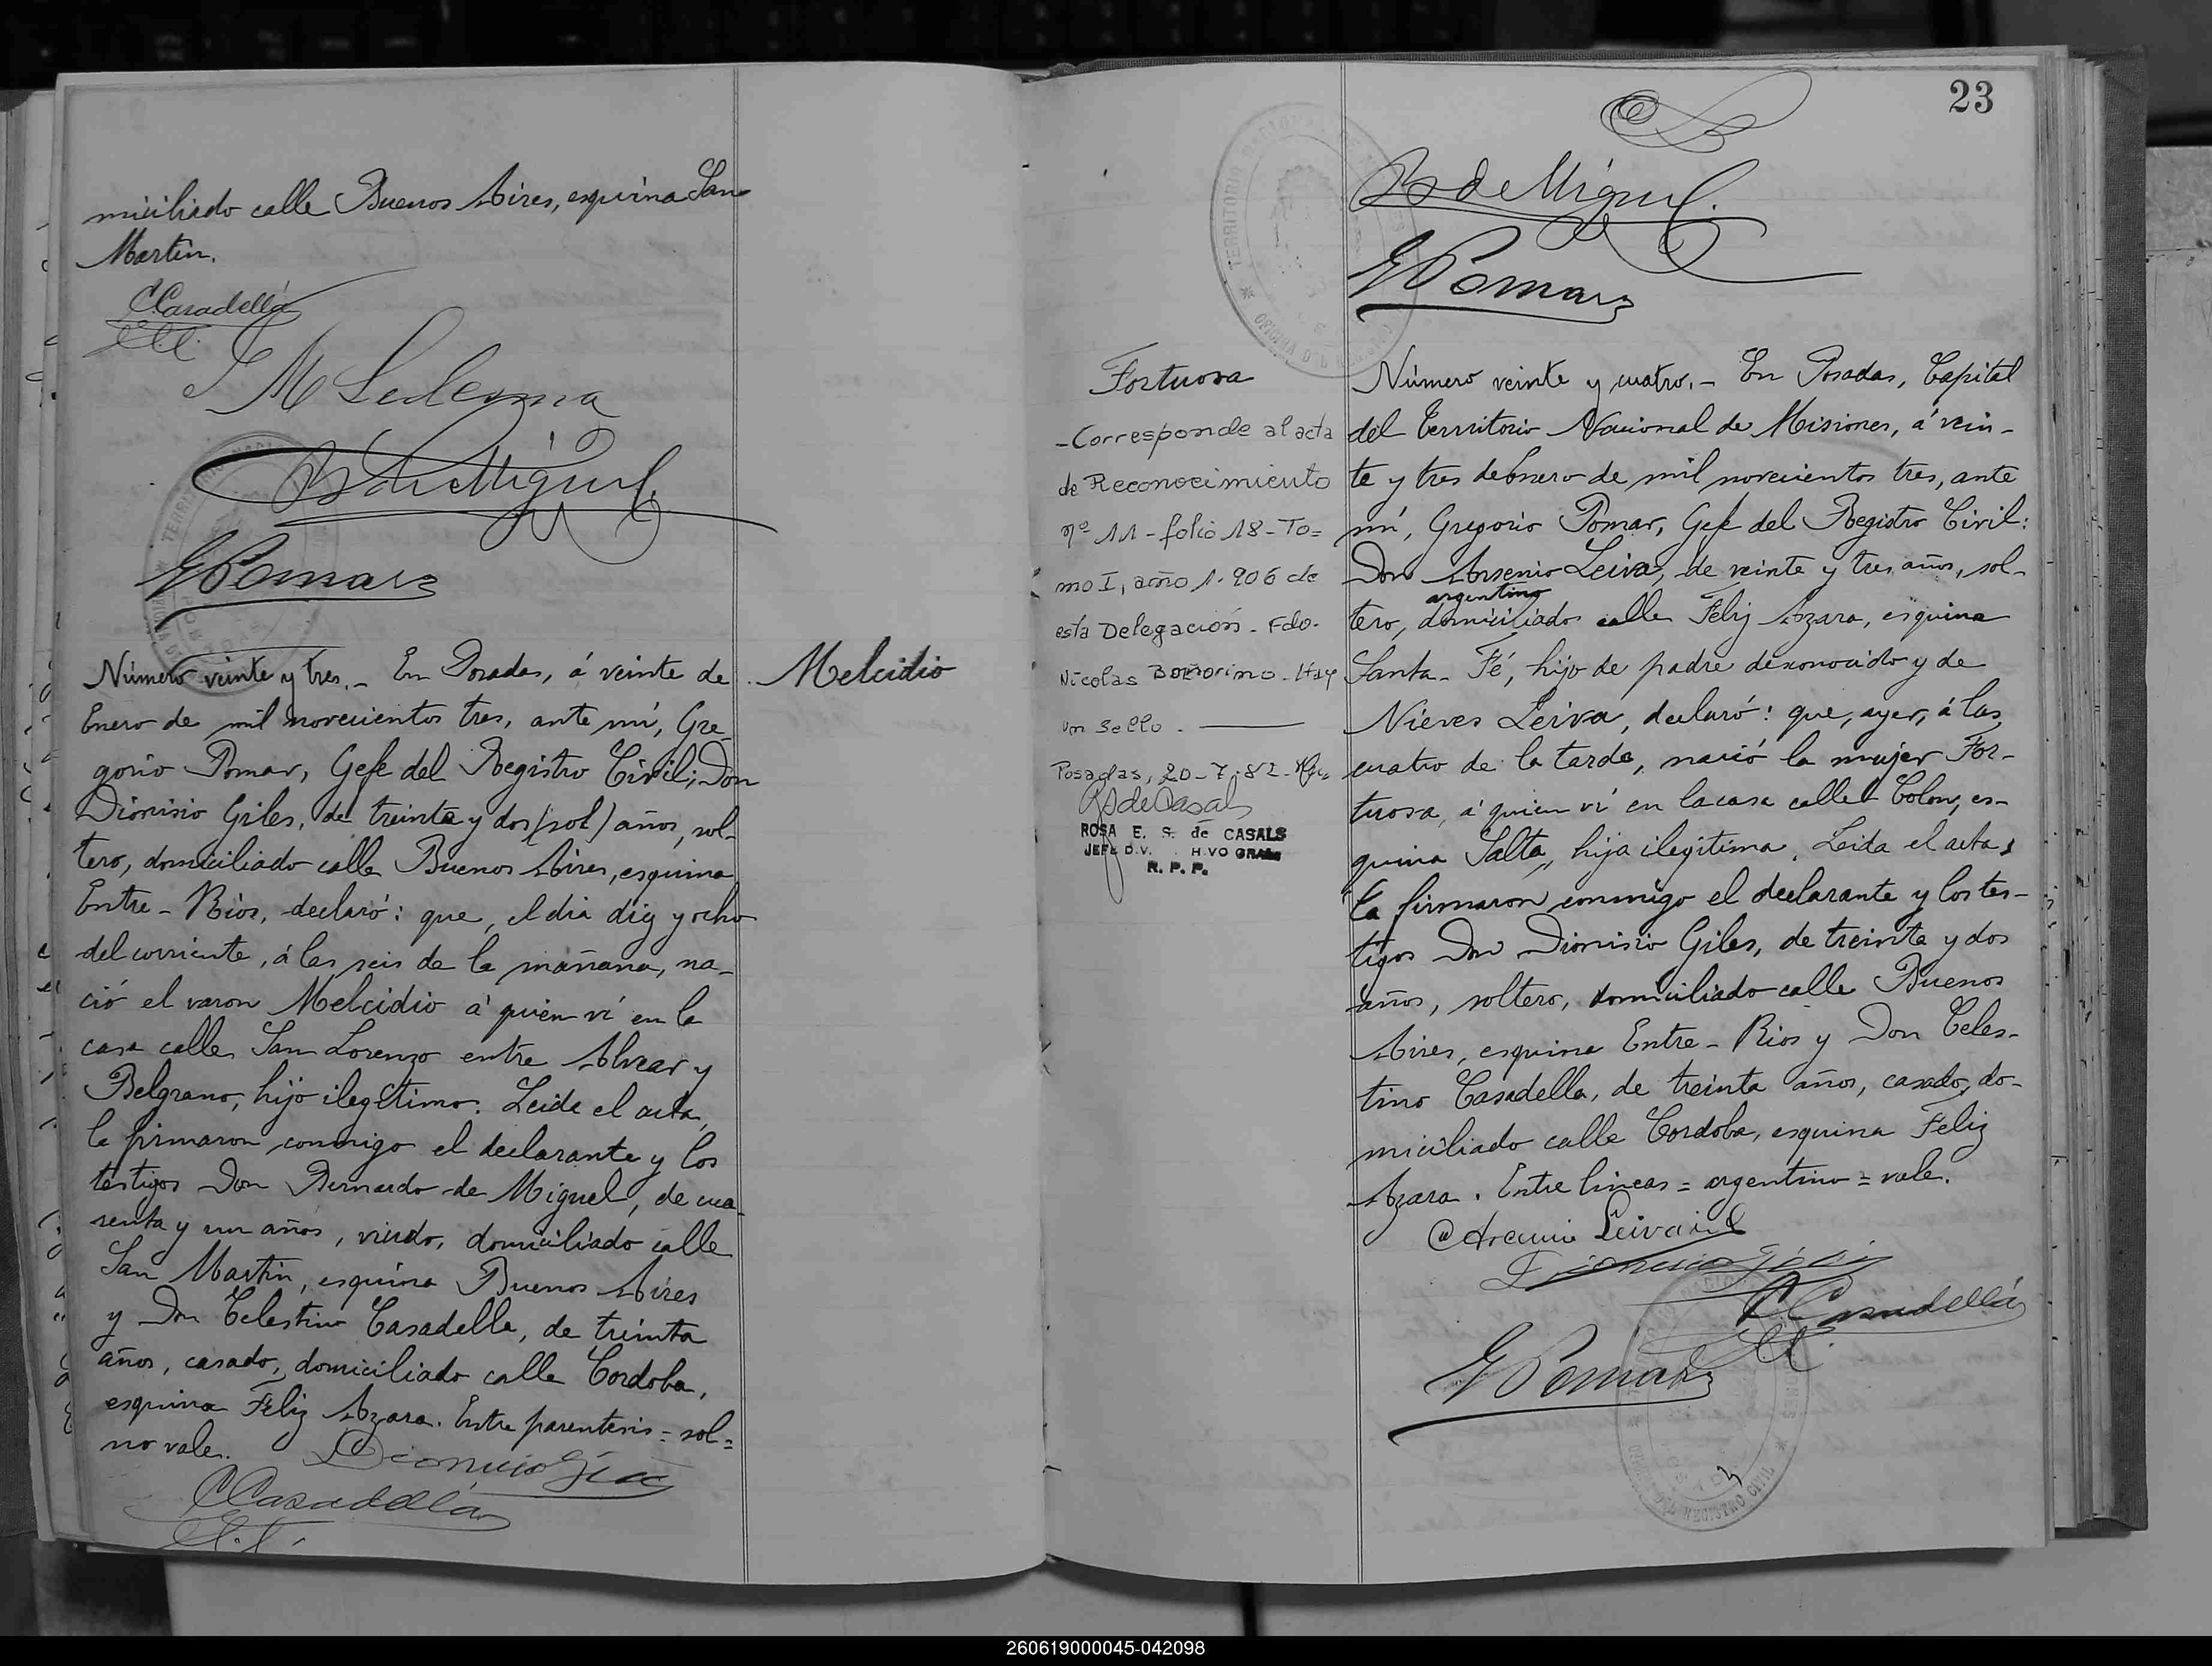 miciliado calle Buenos Aires, esquina San
Martin.
CCasadellá
M Ledesma
B de Miguel.
G Pomar
Número veinte y tres.- En Posadas, á veinte de
Enero de mil novecientos tres, ante mí, Gre-
gorio Pomar, Gefe del Registro Civil; Don
Dionisio Giles, de treinta y dos (sol) años, sol-
tero, domiciliado calle Buenos Aires, esquina
Entre-Rios, declaró: que, el dia diez y ocho
del corriente, á las seis de la mañana, na-
ció el varon Melcidio á quien ví en la
casa calle San Lorenzo entre Alvear y
Belgrano, hijo ilegítimo. Leida el acta,
la firmaron conmigo el declarante y los
testigos Don Bernardo de Miguel, de cua-
renta y un años, viudo, domiciliado calle
San Martin, esquina Buenos Aires
y Don Celestino Casadella, de treinta
años, casado, domiciliado calle Cordoba,
esquina Feliz Azara. Entre parentesis = sol =
no vale.
CCasadellá
Melcidio
23
B de Miguel.
G Pomar
Fortuosa
-Corresponde al acta
de Reconocimiento
nº 11 - folio 18 - To=
mo I, año 1.906 de
esta Delegación - Fdo.
Nicolas Bonorino - Hay
un sello.
Posadas, 20-7-82-
RSdeCasals
ROSA E. S. de CASALS
R. P. P.
Número veinte y cuatro.- En Posadas, Capital
del Territorio Nacional de Misiones, á vein-
te y tres de Enero de mil novecientos tres, ante
mí, Gregorio Pomar, Gefe del Registro Civil:
Don Arsenio Leiva, de veinte y tres años, sol-
argentino
tero, domiciliado calle Feliz Azara, esquina
Santa-Fé, hijo de padre desconocido y de
Nieves Leiva, declaró: que, ayer, á las
cuatro de la tarde, nació la mujer For-
tuosa, á quien ví en la casa calle Colon, es-
quina Salta, hija ilegítima. Leida el acta,
la firmaron conmigo el declarante y los tes-
tigos Don Dionisio Giles, de treinta y dos
años, soltero, domiciliado calle Buenos
Aires, esquina Entre-Rios y Don Celes-
tino Casadella, de treinta años, casado, do-
miciliado calle Cordoba, esquina Feliz
Azara. Entre lineas = argentino = vale.
Leiva
CCasadellá
G Pomar
260619000045-042098